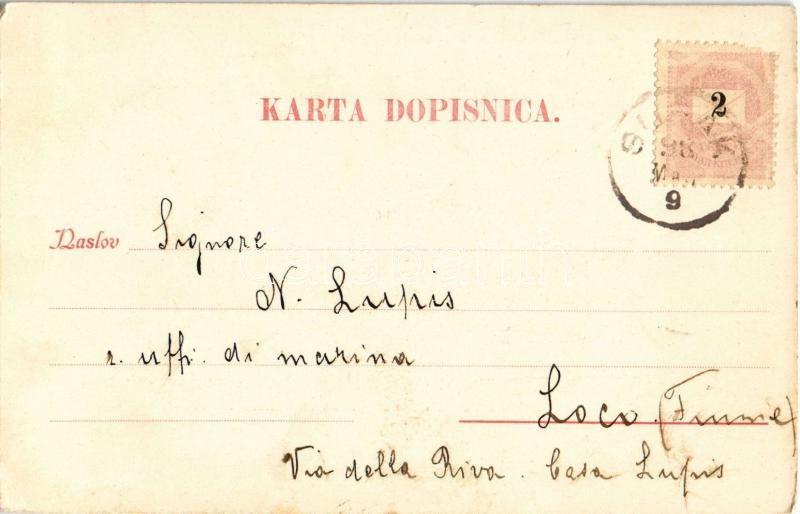 KARTA DOPISNICA.
2
98
9
Naslov Signore
N. Lupis
r. uffi. di marina
Loco (Fiume)
Via della Riva. Casa Lupis